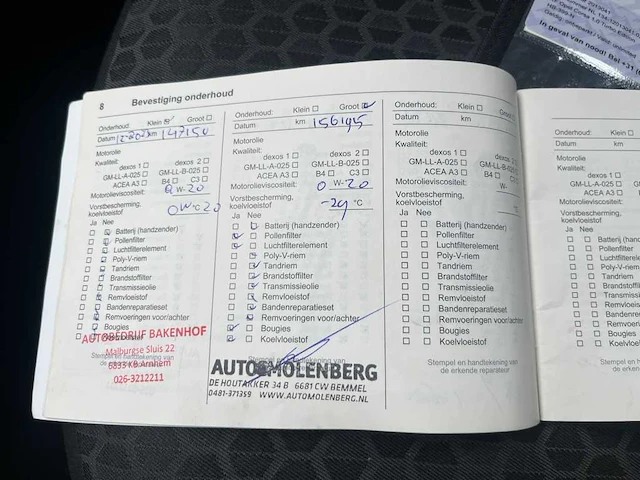 8 Bevestiging onderhoud
Onderhoud: Klein Groot
Datum 12-2023 km 147150
Motorolie
Kwaliteit:
dexos 1 dexos 2
GM-LL-A-025 GM-LL-B-025
ACEA A3 B4 C3
Motorolieviscositeit: 0 W-20
Vorstbescherming,
koelvloeistof °C
Ja Nee
Batterij (handzender)
Pollenfilter
Luchtfilterelement
Poly-V-riem
Tandriem
Brandstoffilter
Transmissieolie
Remvloeistof
Bandenreparatieset
Remvoeringen voor/achter
Bougies
AUTOBEDRIJF BAKENHOF
Stempel en handtekening van
Malburgse Sluis 22
6833 KB Arnhem
026-3212211
Onderhoud: Klein Groot
Datum km 156195
Motorolie
Kwaliteit:
dexos 1 dexos 2
GM-LL-A-025 GM-LL-B-025
ACEA A3 B4 C3
Motorolieviscositeit: 0 W-20
Vorstbescherming,
koelvloeistof -29 °C
Ja Nee
Batterij (handzender)
Pollenfilter
Luchtfilterelement
Poly-V-riem
Tandriem
Brandstoffilter
Transmissieolie
Remvloeistof
Bandenreparatieset
Remvoeringen voor/achter
Bougies
Koelvloeistof
Stempel en handtekening van
AUTOSMOLENBERG
DE HOUTAKKER 34 B 6681 CW BEMMEL
0481-371359 WWW.AUTOMOLENBERG.NL
Onderhoud: Klein Groot
Datum km
Motorolie
Kwaliteit:
dexos 1 dexos 2
GM-LL-A-025 GM-LL-B-025
ACEA A3 B4 C3
Motorolieviscositeit: W-
Vorstbescherming,
koelvloeistof °C
Ja Nee
Batterij (handzender)
Pollenfilter
Luchtfilterelement
Poly-V-riem
Tandriem
Brandstoffilter
Transmissieolie
Remvloeistof
Bandenreparatieset
Remvoeringen voor/achter
Bougies
Koelvloeistof
Stempel en handtekening van
de erkende reparateur
Onderhoud:
Datum
Motorolie
Kwaliteit:
GM-LL-A-025
ACEA A3
Motorolieviscositeit:
Vorstbescherming,
koelvloeistof
Ja Nee
Batterij (hand
Pollenfilter
Luchtfilterelement
Poly-V-riem
Tandriem
Brandstoffilter
Transmissieolie
Remvloeistof
Bandenreparati
Remvoeringen
Bougies
Koelvloeistof
Stempel en
de erken
Opel Corsa 1.0 Turbo
In geval van nood! Bel +31